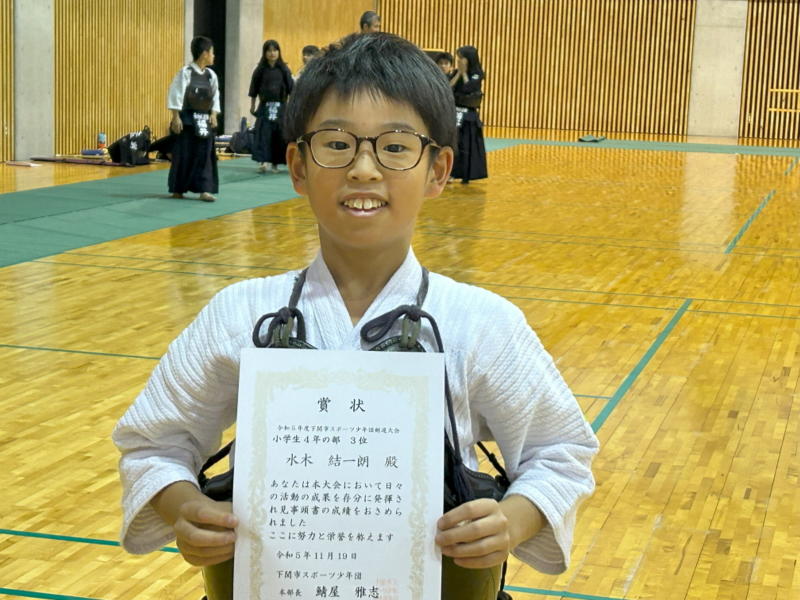 賞状
令和5年度下関市スポーツ少年団剣道大会
小学生4年の部 3位
水木 結一朗 殿
あなたは本大会において日々
の活動の成果を存分に発揮さ
れ見事頭書の成績をおさめら
れました
ここに努力と栄誉を称えます
令和5年11月19日
下関市スポーツ少年団
本部長 鯖屋 雅志